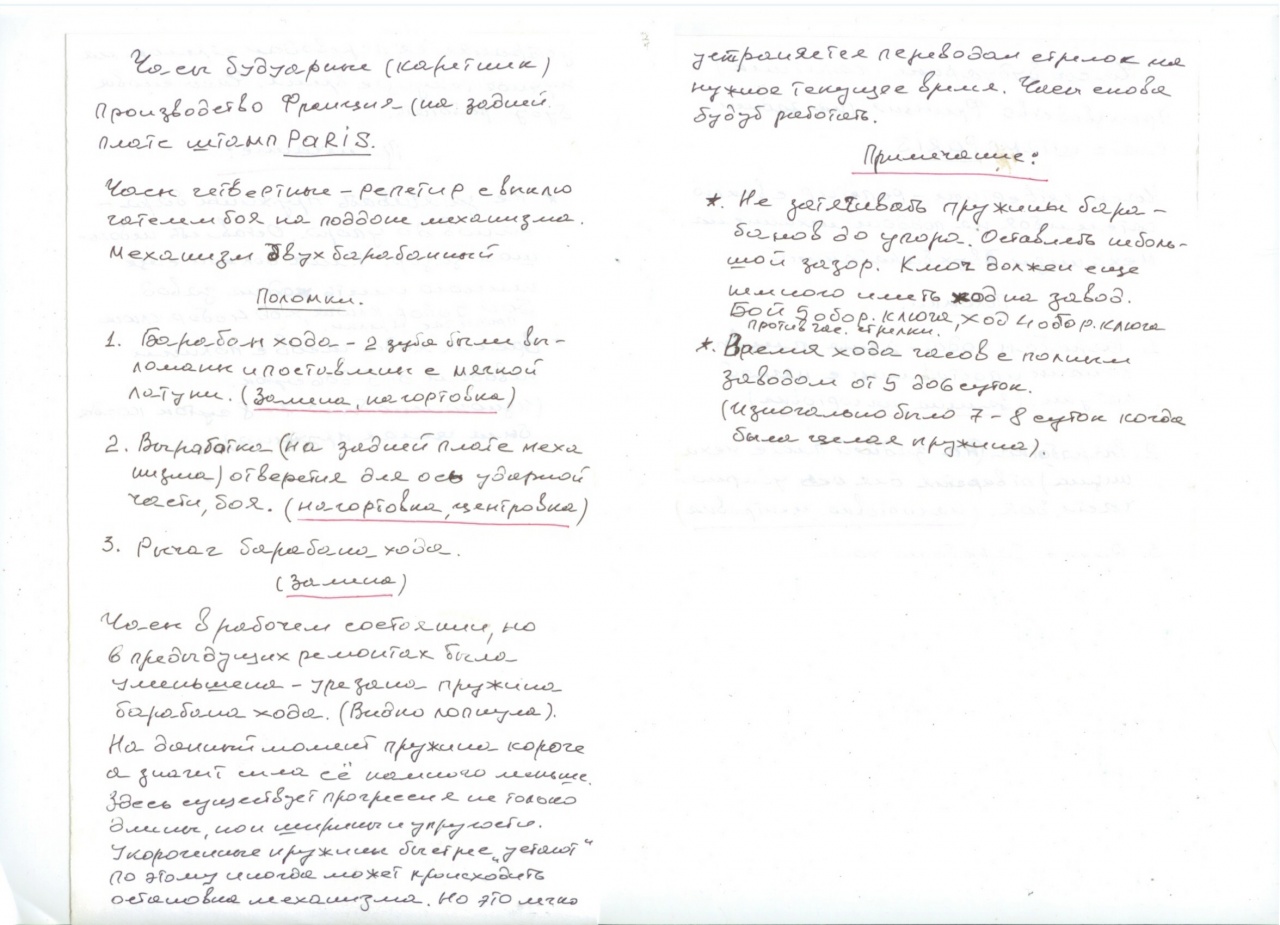 Часы будуарные (каретник)
производство Франция - (на задней
плате штамп PARIS.
Часы четвертные - репетир с выклю
чателем боя на поддоне механизма.
Механизм двухбарабанный
Поломки.
1. Барабан хода - 2 зуба были вы-
ломаны и поставлены с мягкой
латуни. (Замена, нагортовка)
2. Выработка (на задней плате меха
низма) отверстия для ось ударной
части, боя. (нагортовка, центровка)
3. Рычаг барабана хода.
(Замена)
Часы в рабочем состоянии, но
в предыдущих ремонтах была
уменьшена - урезана пружина
барабана хода. (Видно лопнула).
На данный момент пружина короче
а значит сила её намного меньше.
Здесь существует прогрессия не только
длины, но и ширины и упругости.
Укороченные пружины быстрее „устают“
по этому иногда может происходить
остановка механизма. Но это легко
устраняется переводом стрелок на
нужное текущее время. Часы снова
будут работать.
Примечание:
*. Не затягивать пружины бара-
банов до упора. Оставлять неболь-
шой зазор. Ключ должен еще
немного иметь ход на завод.
Бой 5 обор. ключа, ход 4 обор. ключа
против час. стрелки.
*. Время хода часов с полным
заводом от 5 до 6 суток.
(Изначально было 7-8 суток когда
была целая пружина)